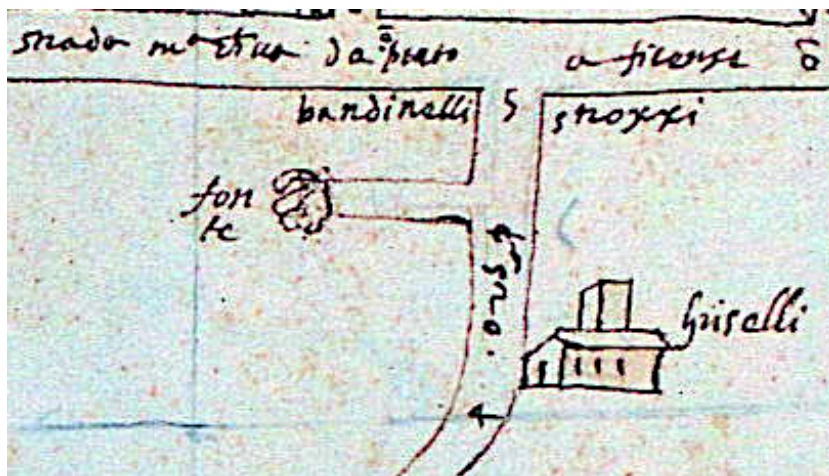 strada maestra da prato a firenze 6
bandinelli 5 stroxxi
fon
te
griselli